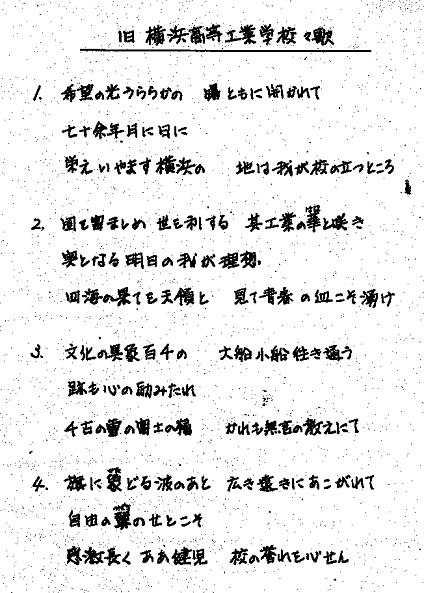 旧 横浜高等工業学校々歌
1. 希望の光うららかの 曙ともに開かれて
七十余年月に日に
栄えいやます横浜の 地は我が校の立つところ
2. 国を富ましめ 世を利する 其工業の華と咲き
実となる明日の我が理想
四海の果てを天領と 見て青春の血こそ湧け
3. 文化の異象百千の 大船小船往き通う
跡も心の励みたれ
千古の雪の富士の嶺 かれも無言の教えにて
4. 旗に どる波のあと 広き遠きにあこがれて
自由の翼のせとこそ
感激長く ああ健児 校の誉れを心せん